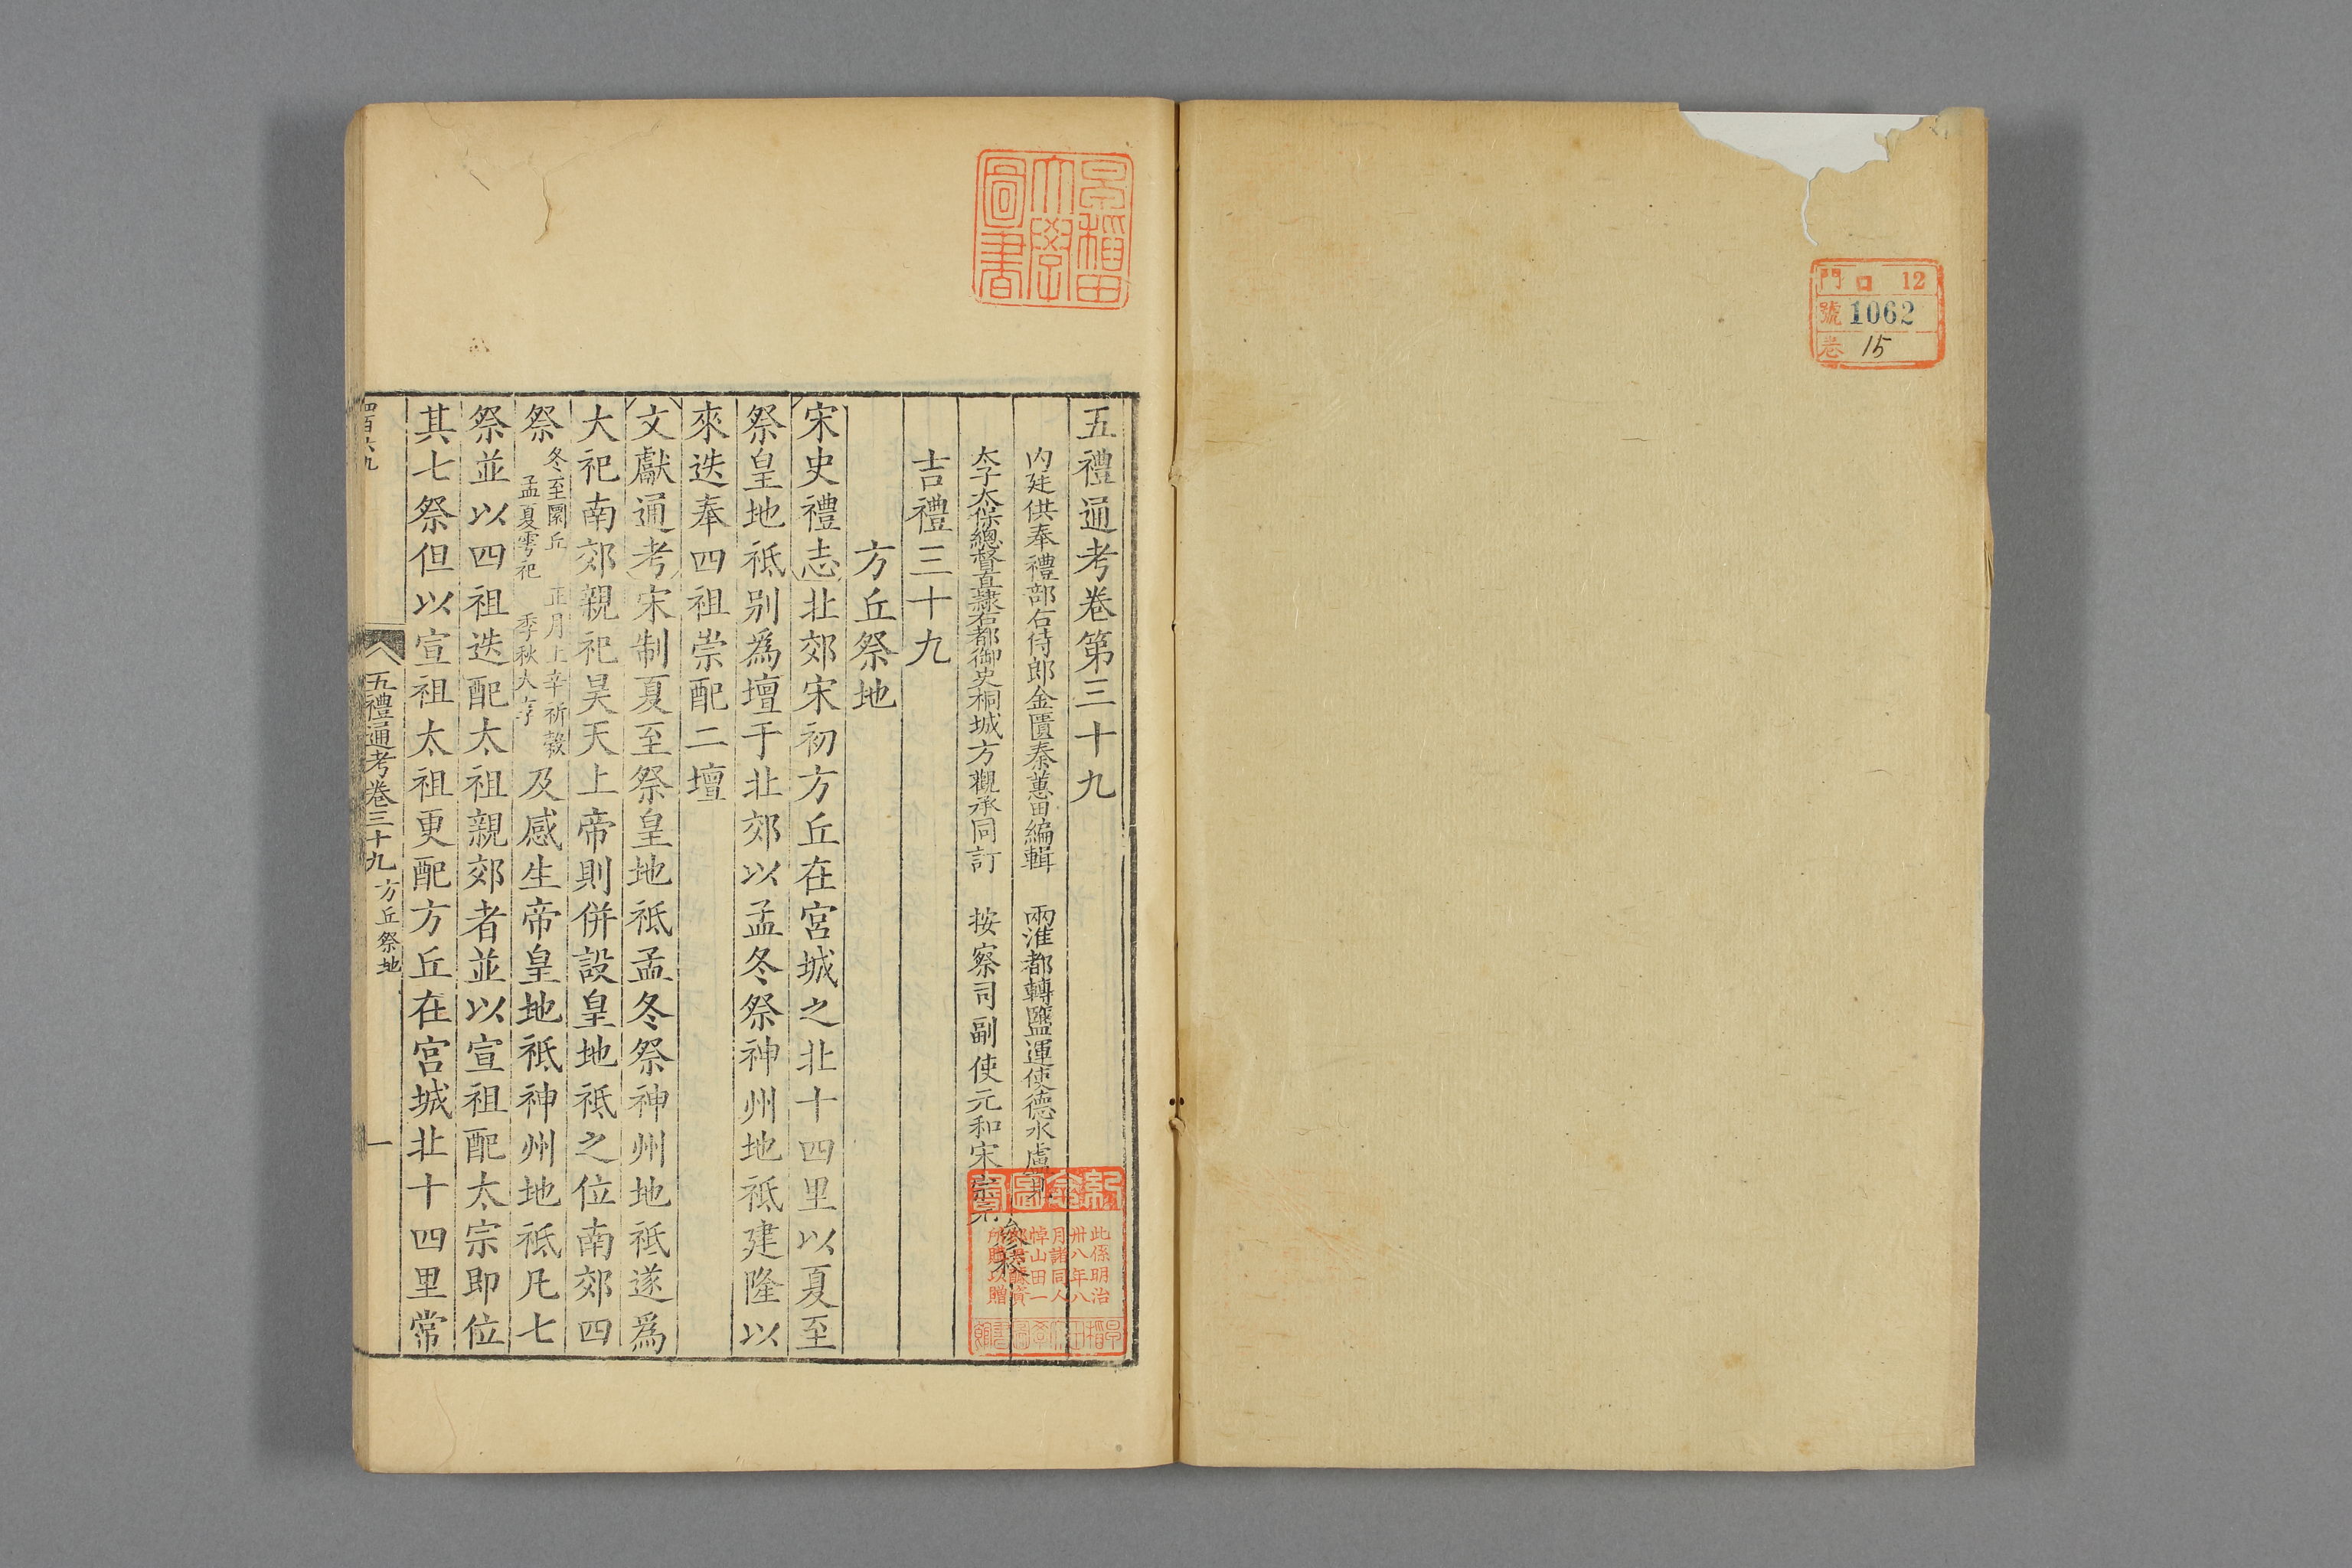 門 口 12
號 1062
卷 15
早稻田
大學
圖書
五禮通考卷第三十九
內廷供奉禮部右侍郎金匱秦蕙田編輯 兩淮都轉鹽運使德水盧見
太子太保總督直隸右都御史桐城方觀承同訂 按察司副使元和宋宗元
參校
吉禮三十九
方丘祭地
宋史禮志北郊宋初方丘在宮城之北十四里以夏至
祭皇地祇别爲壇于北郊以孟冬祭神州地祇建隆以
來迭奉四祖崇配二壇
文獻通考宋制夏至祭皇地祇孟冬祭神州地祇遂爲
大祀南郊親祀昊天上帝則併設皇地祇之位南郊四
祭冬至圜丘 正月上辛祈穀
孟夏雩祀 季秋大享及感生帝皇地祇神州地祇凡七
祭並以四祖迭配太祖親郊者並以宣祖配太宗即位
其七祭但以宣祖太祖更配方丘在宮城北十四里常
五禮通考卷三十九 方丘祭地 一
此係明治
卅八年八
月諸同人
悼山田一
所 以贈